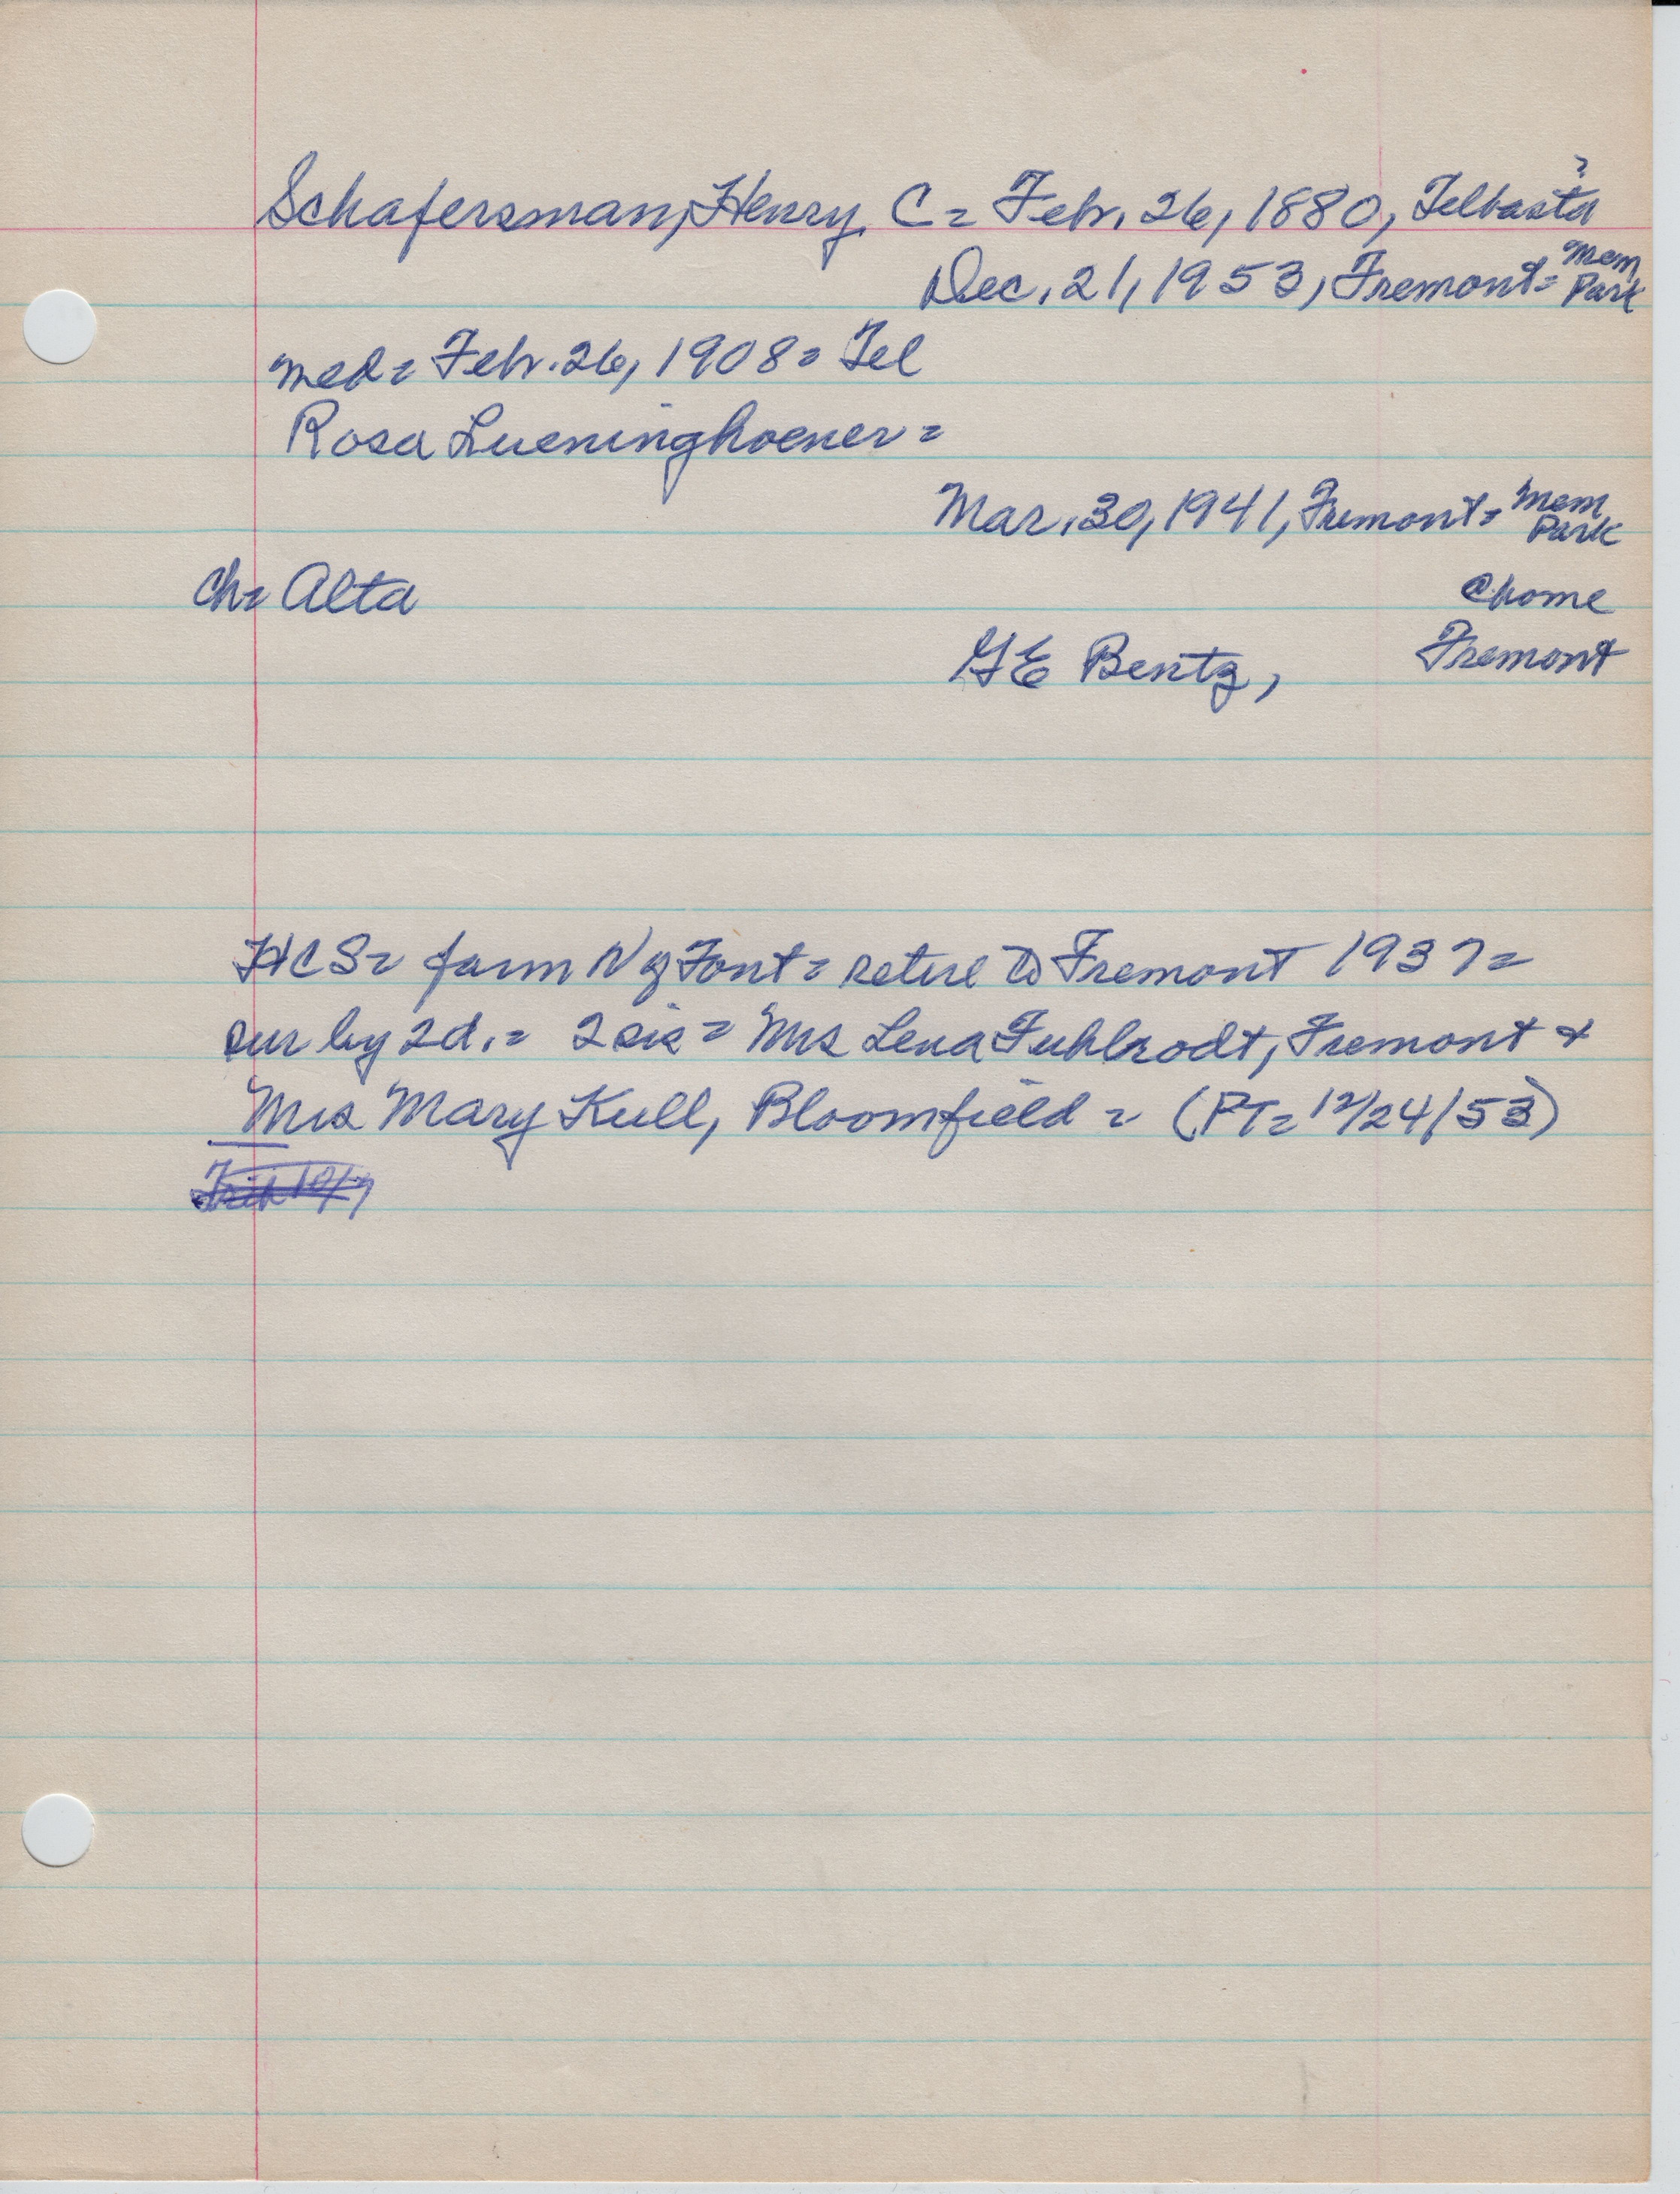 ?
Schafersman, Henry C = Febr. 26, 1880, Telbasta
Dec. 21, 1953, Fremont = Mem Park
med = Febr. 26, 1908 = Tel
Rosa Lueninghoener =
Mar. 30, 1941, Fremont = Mem Park
ch = Alta @home
GE Bentz, Fremont
HCS = farm N of Font = retire to Fremont 1937 =
sur by 2d. = 2 sis = Mrs Lena Fuhlrodt, Fremont +
Mrs Mary Kull, Bloomfield = (PT = 12/24/53)